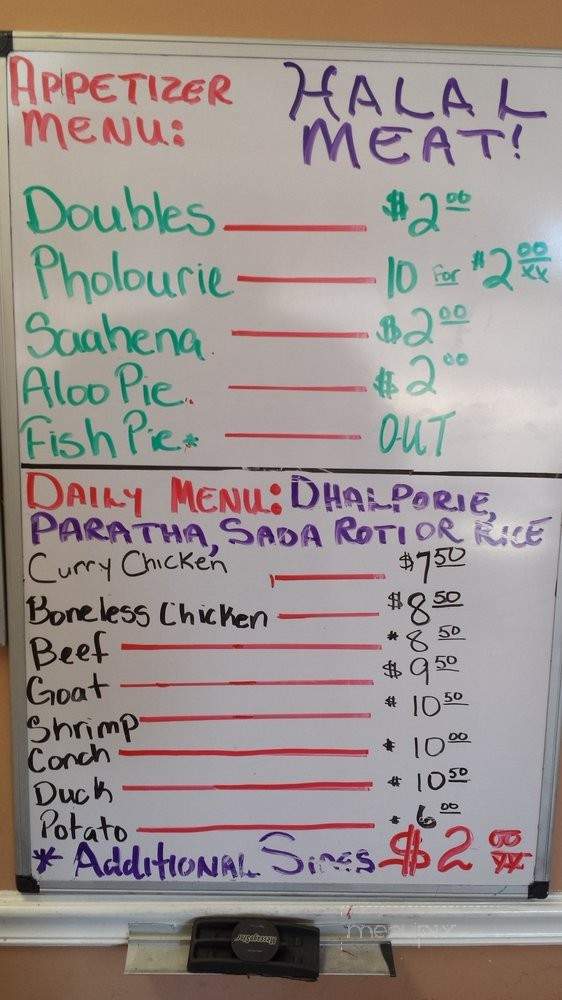 APPETIZER MENU:
HALAL MEAT!
Doubles $2 00
Pholourie 10 For $2 00 xx
Saahena. $2 00
Aloo Pie. $2 00
Fish Pie* OUT
DAILY MENU: DHALPORIE,
PARATHA, SADA ROTI OR RICE
Curry Chicken $7 50
Boneless Chicken $8 50
Beef $8 50
Goat $9 50
Shrimp $10 50
Conch $10 00
Duck $10 50
Potato $6 00
* Additional Sides $2 00 xx
menupix